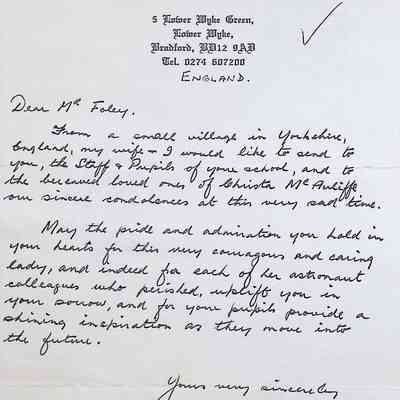 5 Lower Wyke Green,
Lower Wyke,
Bradford, BD12 9AD
Tel. 0274 607200
ENGLAND.
Dear Mr Foley.
From a small village in Yorkshire,
England, my wife & I would like to send to
you, the Staff & Pupils of your school, and to
the bereaved loved ones of Christa McAuliffe
our sincere condolences at this very sad time.
May the pride and admiration you hold in
your hearts for this very couragous and caring
lady, and indeed for each of her astronaut
colleagues who perished, uplift you in
your sorrow, and for your pupils provide a
shining inspiration as they move into
the future.
Yours very sincerely